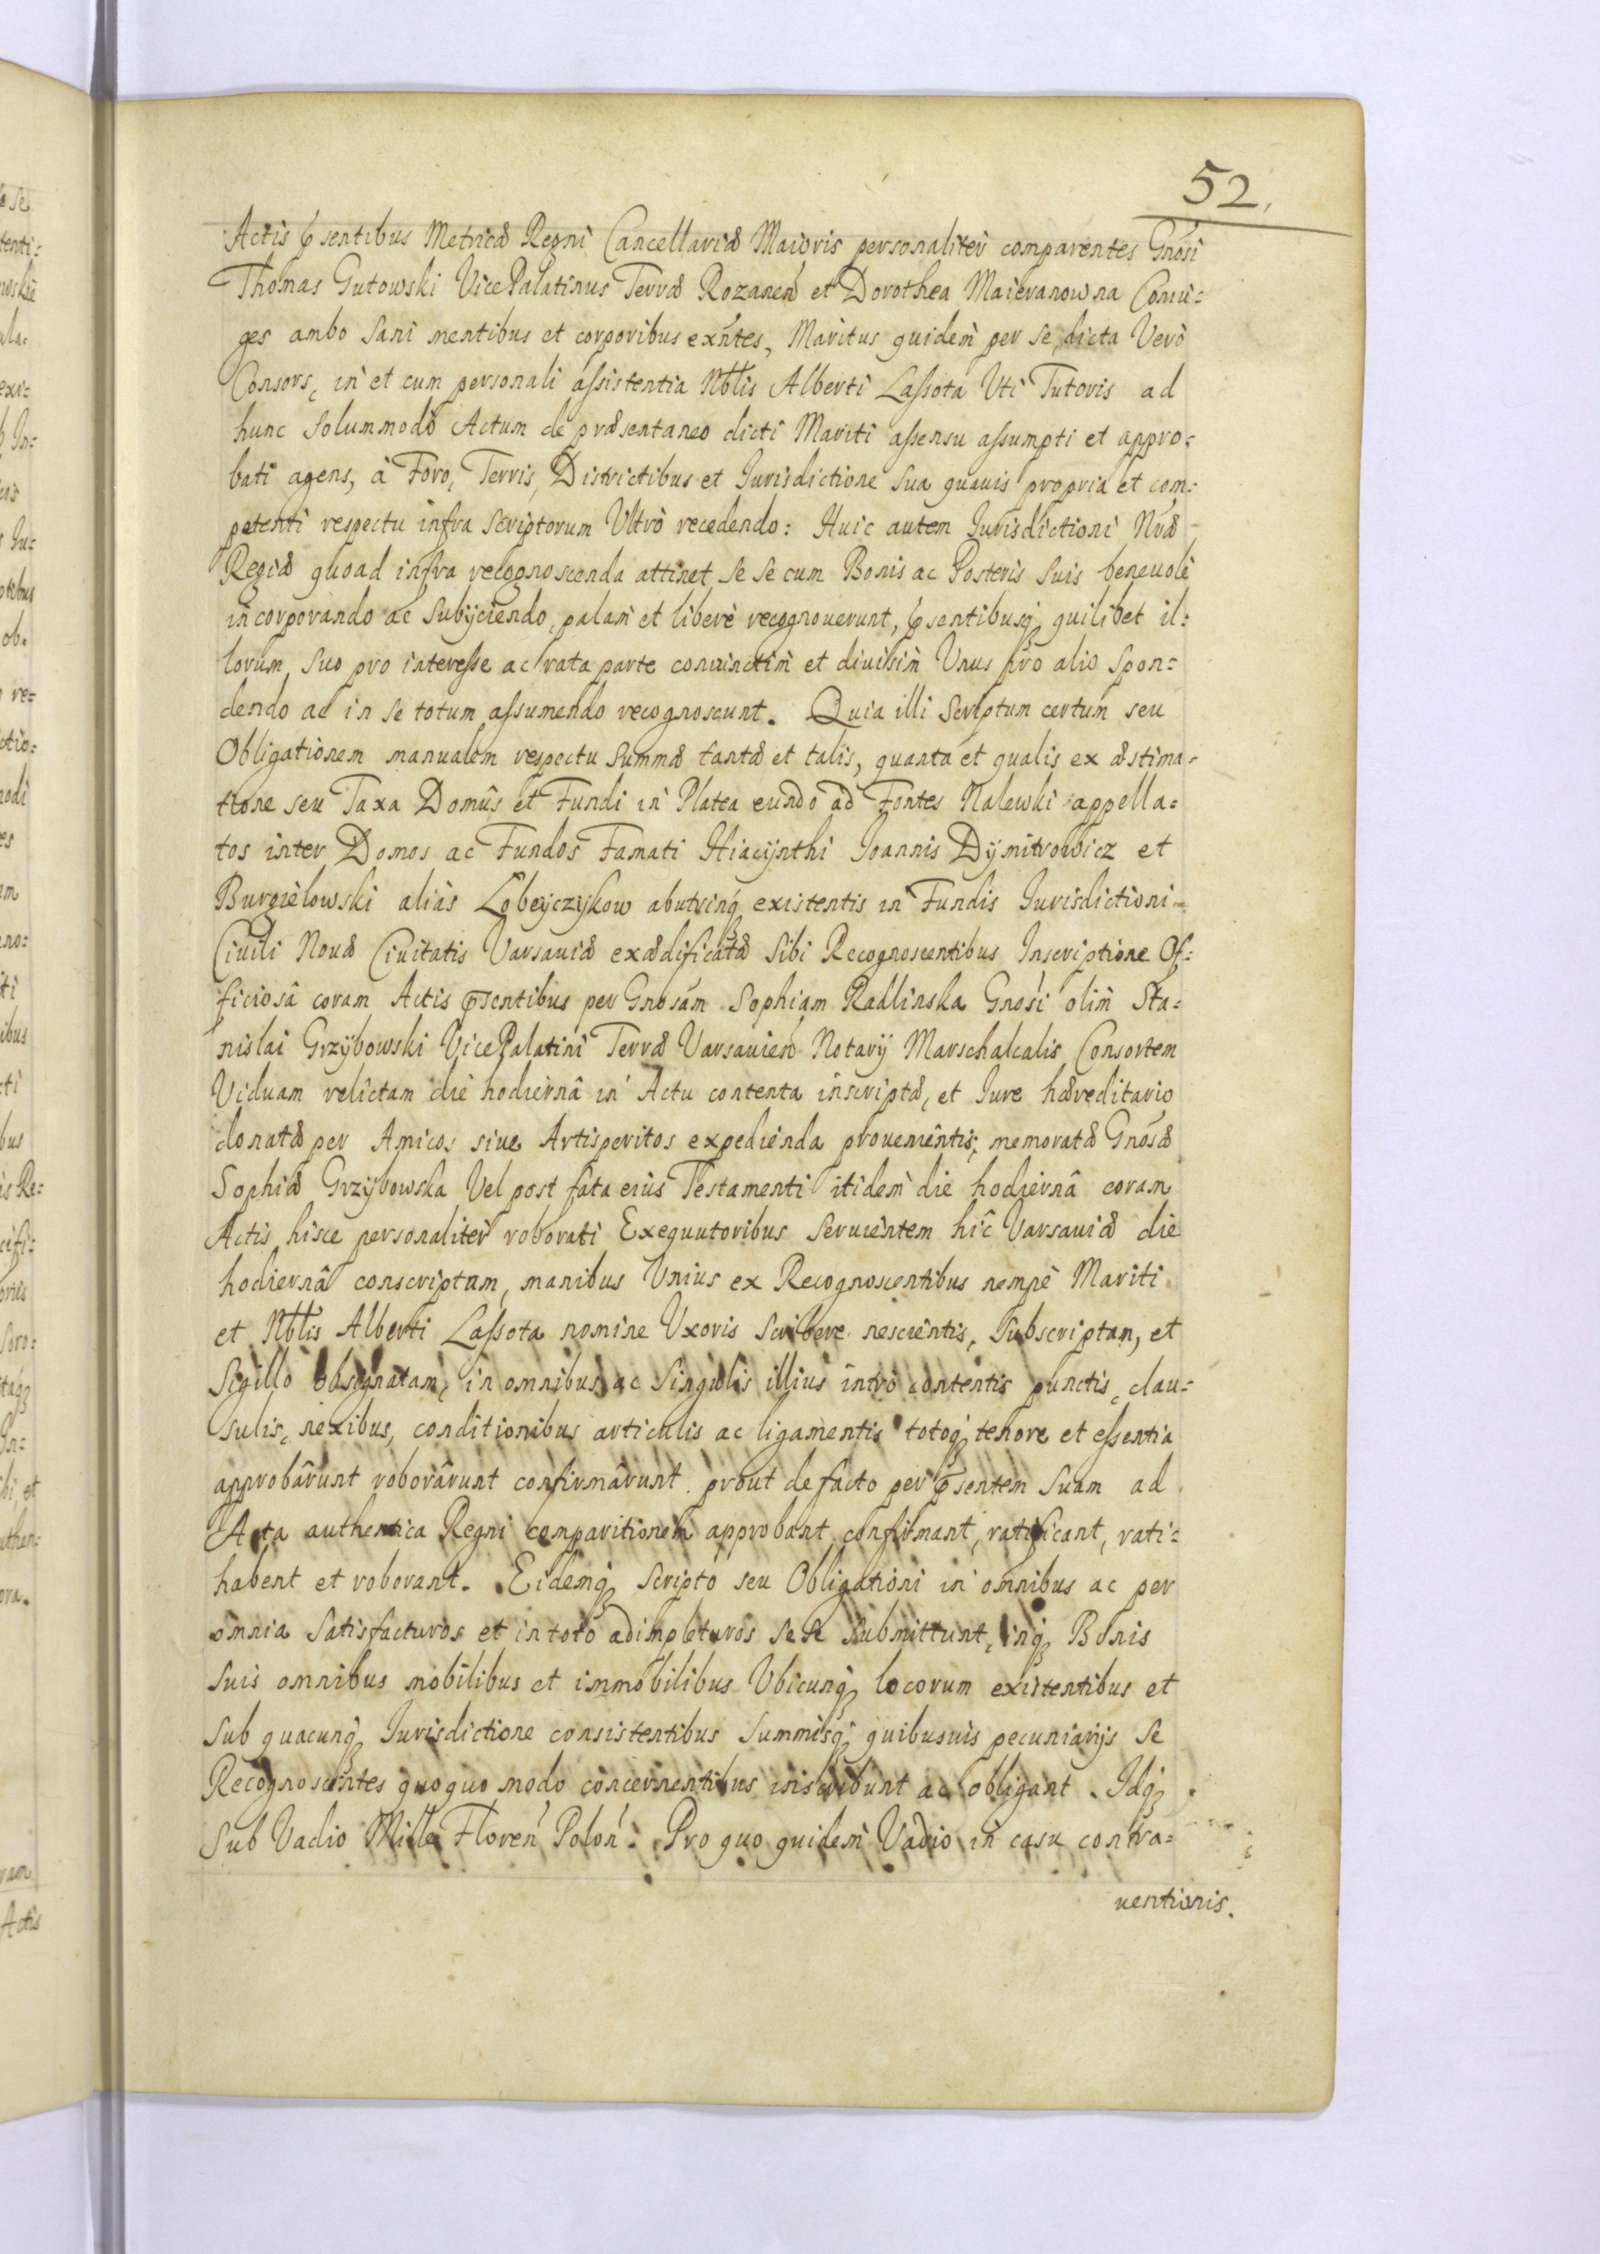 52.
Actis psentibus Metricæ Regni Cancellariæ Maioris personaliter comparentes Gnosi
Thomas Gutowski VicePalatinus Terræ Rozanen et Dorothea Maieranowna Coniu=
ges ambo sani mentibus et corporibus exntes, Maritus quidem per se, dicta Verò
Consors, in et cum personali assistentia Nblis Alberti Lassota Uti Tutoris ad
hunc solummodo Actum de præsentaneo dicti Mariti assensu assumpti et appro=
bati agens, à Foro, Terris, Districtibus et Iurisdictione sua quavis propria et com=
petenti respectu infra scriptorum Ultrò recedendo: Huic autem Iurisdictioni Nræ
Regiæ quoad infra recognoscenda attinet se se cum Bonis ac Posteris suis benevolè
incorporando ac subijciendo, palam et liberè recognouerunt, psentibusq quilibet il=
lorum suo pro interesse ac rata parte coniunctim et diuisim Unus pro alio spon=
dendo ac in se totum assumendo recognoscunt. Quia illi Scriptum certum seu
Obligationem manualem respectu summæ tantæ et talis, quanta et qualis ex æstima=
tione seu Taxa Domûs et Fundi in Platea eundo ad Fontes Nalewki appella=
tos inter Domos ac Fundos Famati Hiacynthi Ioannis Dymitrowicz et
Burgielowski aliàs Lobeyczykow abutrinq existentis in Fundis Iurisdictioni
Ciuili Nouæ Ciuitatis Varsauiæ exædificatæ sibi Recognoscentibus Inscriptione Of=
ficiosâ coram Actis psentibus per Gnosam Sophiam Radlinska Gnosi olim Sta=
nislai Grzybowski VicePalatini Terræ Varsauien Notarij Marschalcalis Consortem
Viduam relictam die hodiernâ in Actu contenta inscriptæ, et Iure hæreditario
donatæ per Amicos siue Artisperitos expedienda prouenientis, memoratæ Gnosæ
Sophiæ Grzybowska Vel post fata eius Testamenti itidem die hodiernâ coram
Actis hisce personaliter roborati Exequutoribus seruientem hîc Varsauiæ die
hodiernâ conscriptam, manibus Unius ex Recognoscentibus nempè Mariti
et Nblis Alberti Lassota nomine Uxoris scribere nescientis, subscriptam, et
Sigillo obsignatam, in omnibus ac singulis illius intrò contentis punctis, clau=
sulis, nexibus, conditionibus articulis ac ligamentis totoq tenore et essentia
approbârunt roborârunt confirmârunt prout de facto per psentem suam ad
Acta authentica Regni comparitionem approbant, confirmant, ratificant, rati=
habent et roborant. Eidemq Scripto seu Obligationi in omnibus ac per
omnia satisfacturos et in toto adimpleturos sese submittunt, inq Bonis
suis omnibus mobilibus et immobilibus Ubicunq locorum existentibus et
sub quacunq Iurisdictione consistentibus Summisq quibusuis pecuniarijs se
Recognoscentes quoquo modo concernentibus inscribunt ac obligant. Idq
sub Vadio Mille Floren Polon. Pro quo quidem Vadio in casu contra=
uentionis.